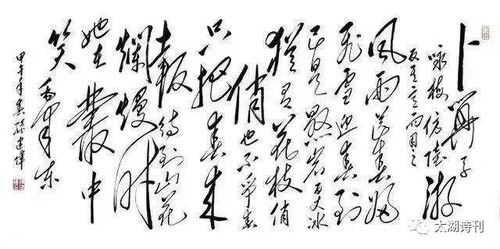 卜算子
詠梅仿陆游
反其意而用之
风雨送春归
飞雪迎春到
已是悬岩百丈冰
犹有花枝俏
俏也不争春
只把春来
报待到山花
烂熳时
她在叢中
笑毛泽东
甲午年
太湖诗刊